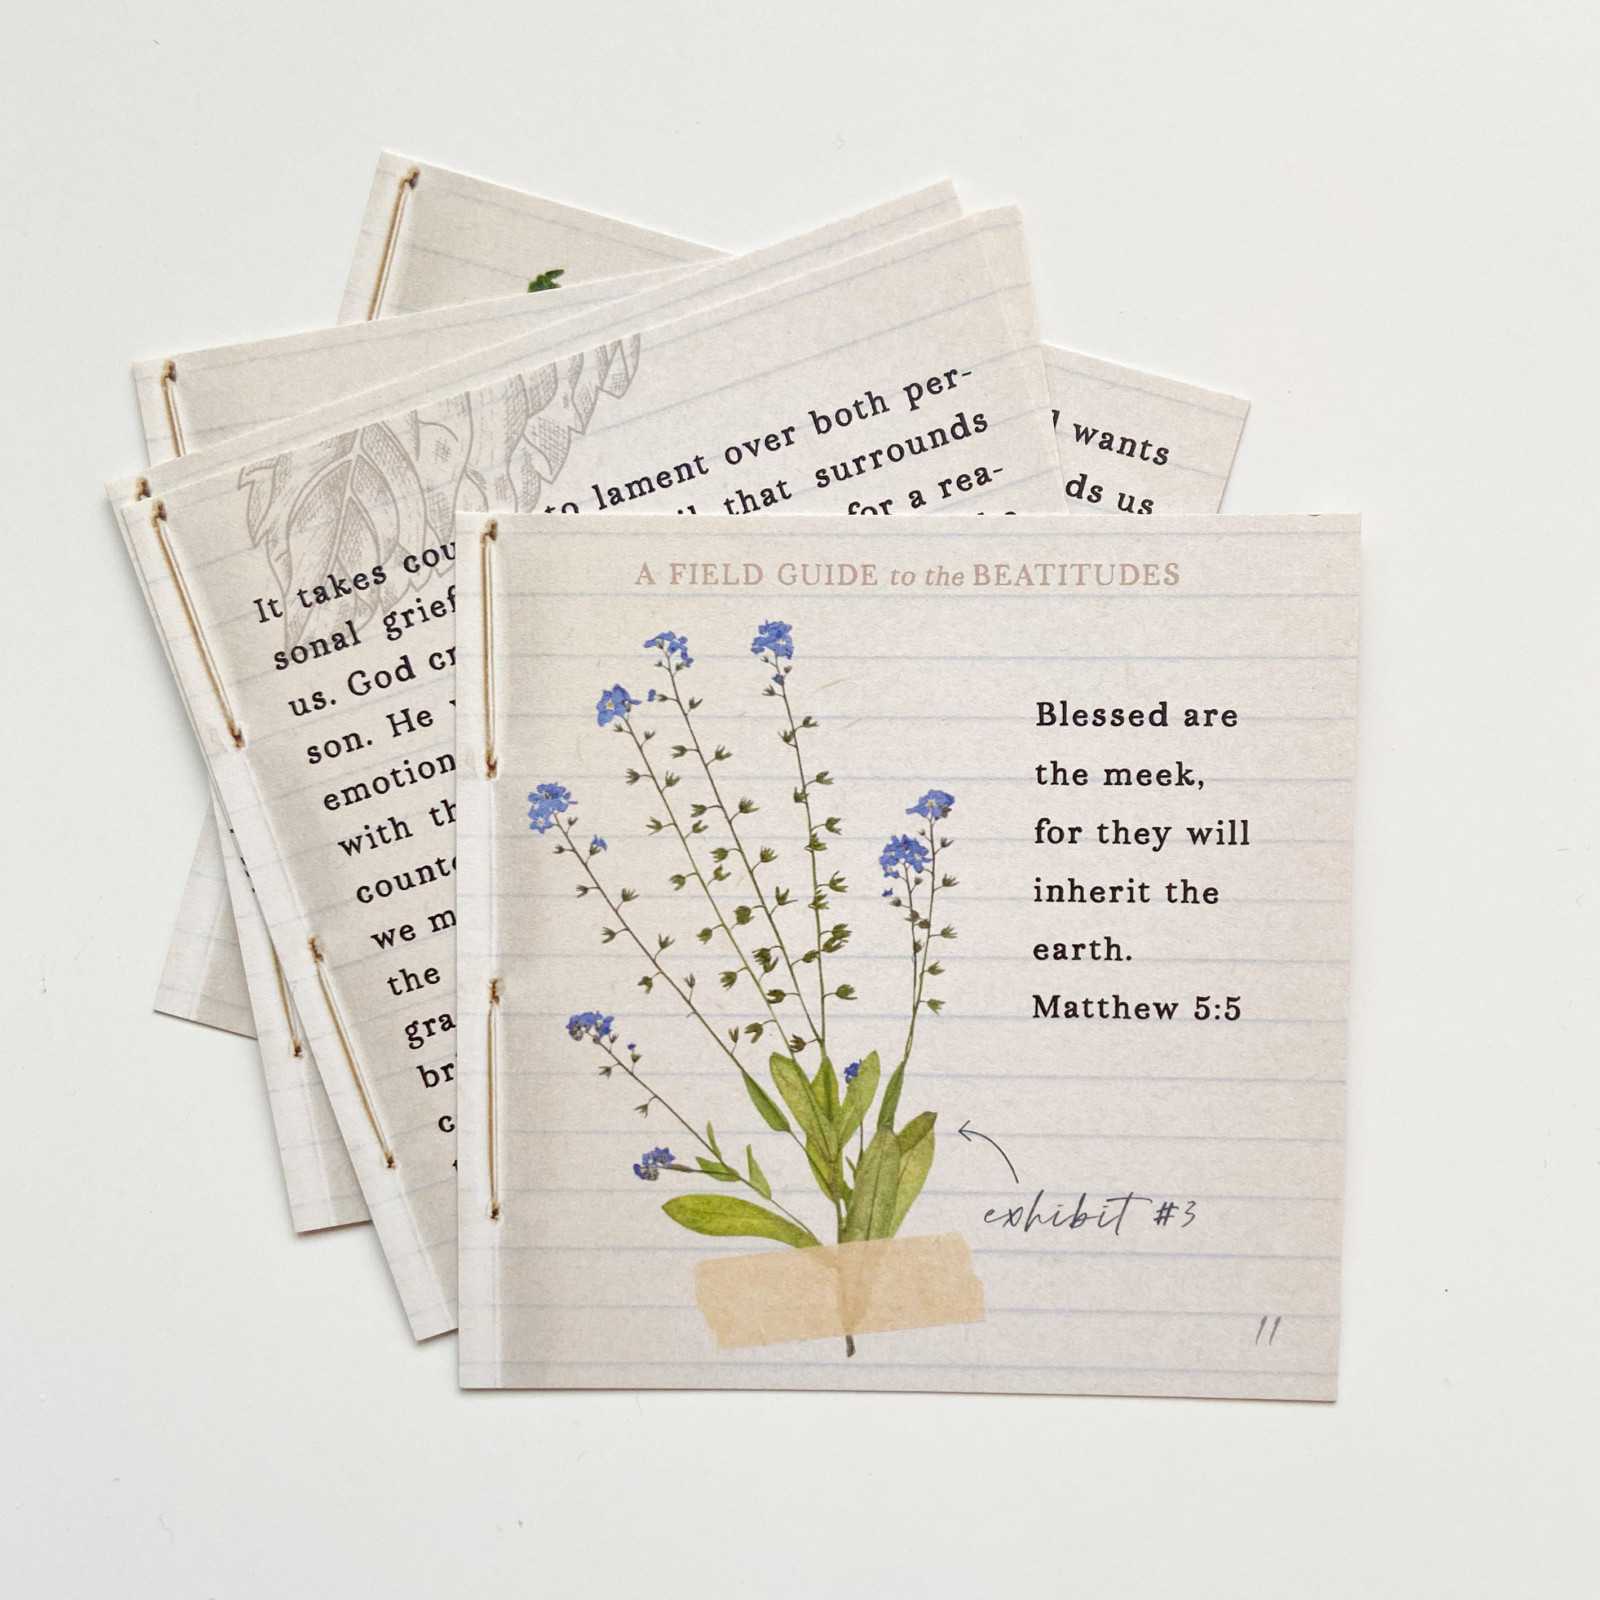 to lament over both per-
that surrounds
for a rea-
wants
ds us
It takes cou
sonal grief
us. God cr
son. He
emotion
with th
counte
we m
the
gra
br
c
A FIELD GUIDE to the BEATITUDES
Blessed are
the meek,
for they will
inherit the
earth.
Matthew 5:5
exhibit #3
11